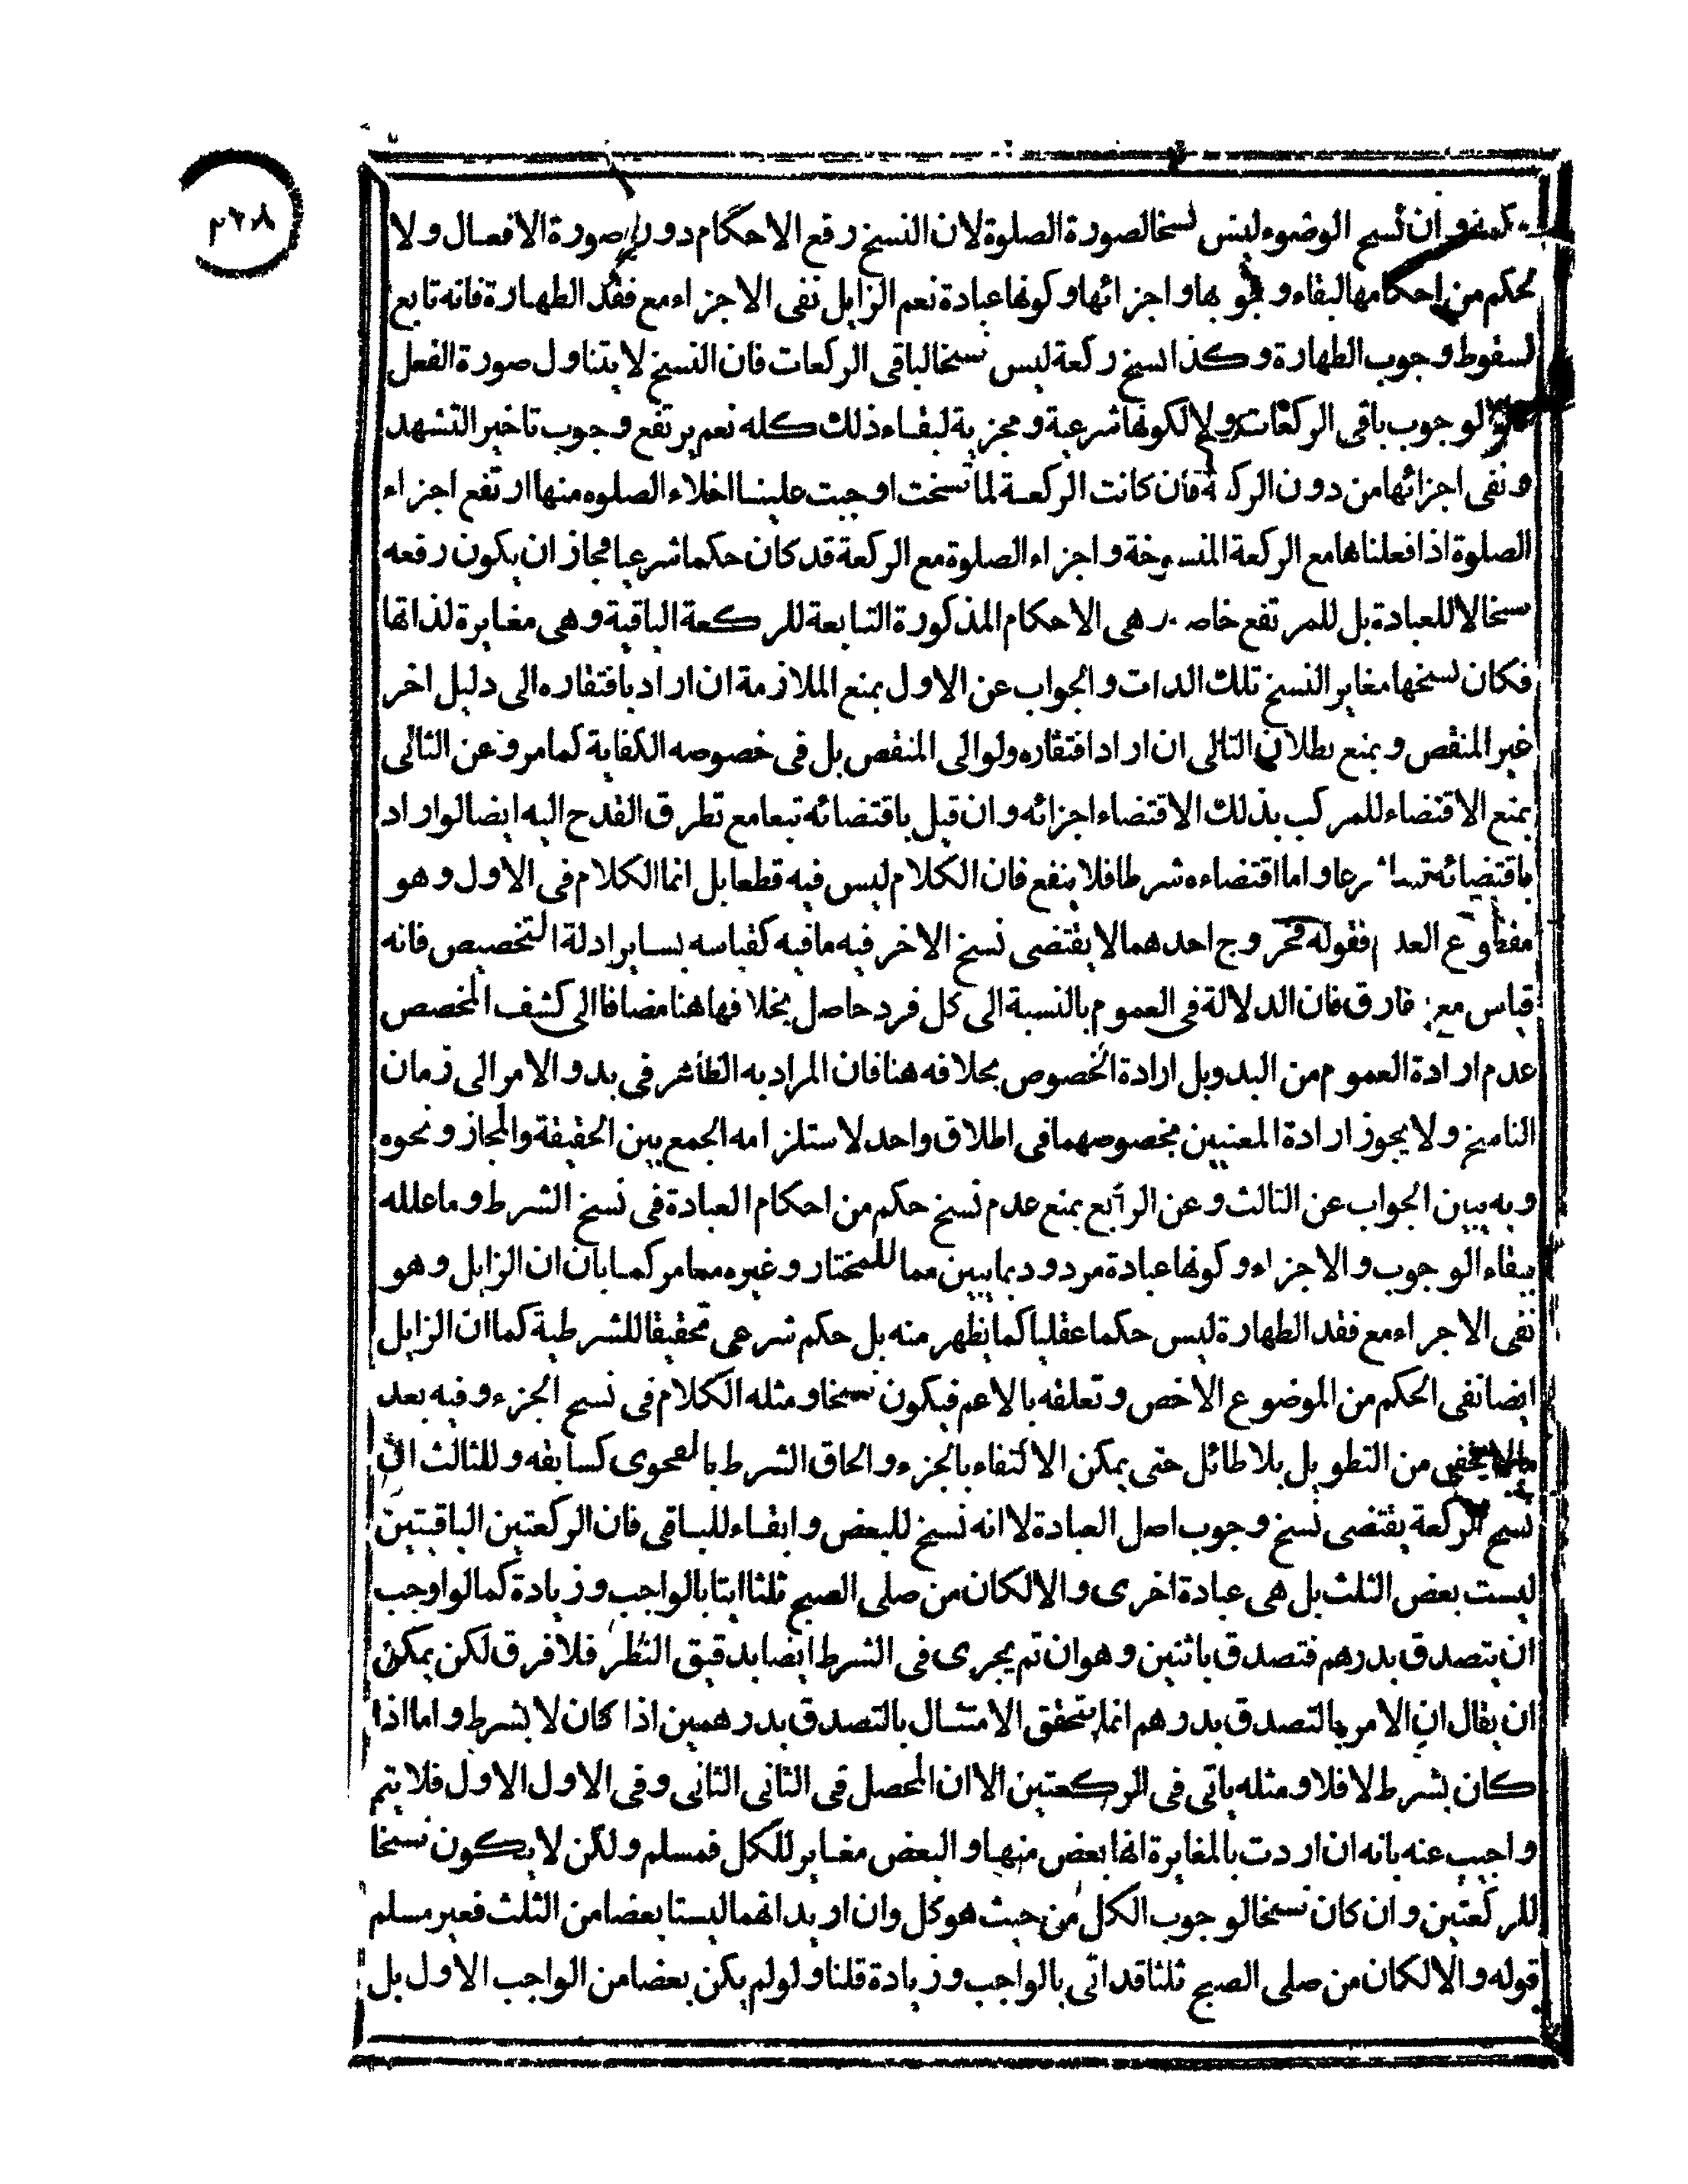 ٢٦٨
وان نسخ الوضوء ليس نسخا لصورة الصلوة لان النسخ رفع الاحكام دون صورة الافعال ولا
لحكم من احكامها لبقاء وجوبها واجزائها وكونها عبادة نعم الزايل نفى الاجزاء مع فقد الطهارة فانه تابع
لسقوط وجوب الطهارة وكذا نسخ ركعة ليس نسخا لباقى الركعات فان النسخ لا يتناول صورة الفعل
لوجوب باقى الركعات ولا لكونها شرعية ومجزية لبقاء ذلك كله نعم يرتفع وجوب تاخير التشهد
ونفى اجزائها من دون الركعة فان كانت الركعة لما نسخت اوجبت علينا اخلاء الصلوه منها ارتفع اجزاء
الصلوة اذا فعلناها مع الركعة المنسوخة واجزاء الصلوة مع الركعة قد كان حكما شرعيا فجاز ان يكون رفعه
نسخا لا للعبادة بل للمرتفع خاصة وهى الاحكام المذكورة التابعة للركعة الباقية وهى مغايرة لذاتها
فكان نسخها مغاير النسخ تلك الذات والجواب عن الاول بمنع الملازمة ان اراد بافتقاره الى دليل اخر
غير المنقص وبمنع بطلان التالى ان اراد افتقاره ولو الى المنقص بل فى خصوصه الكفاية كما مر وعن الثانى
بمنع الاقتضاء للمركب بذلك الاقتضاء اجزائه وان قيل باقتضائه تبعا مع تطرق القدح اليه ايضا لو اراد
باقتضائه شرعا واما اقتضاءه شرطا فلا ينفع فان الكلام ليس فيه قطعا بل انما الكلام فى الاول وهو
مقطوع العدم فقوله فخروج احدهما لا يقتضى نسخ الاخر فيه ما فيه كقياسه بساير ادلة التخصيص فانه
قياس مع فارق فان الدلالة فى العموم بالنسبة الى كل فرد حاصل بخلافها هنا مضافا الى كشف المخصص
عدم ارادة العموم من البدو بل ارادة الخصوص بخلافه هنا فان المراد به الظاهر فى بدو الامر الى زمان
الناسخ ولا يجوز ارادة المعنيين بخصوصهما فى اطلاق واحد لاستلزامه الجمع بين الحقيقة والمجاز ونحوه
وبه يبين الجواب عن الثالث وعن الرابع بمنع عدم نسخ حكم من احكام العبادة فى نسخ الشرط وما علله
ببقاء الوجوب والاجزاء وكونها عبادة مردود بما يبين مما للمختار وغيره مما مر كما بان ان الزايل وهو
نفى الاجزاء مع فقد الطهارة ليس حكما عقليا كما يظهر منه بل حكم شرعى تحقيقا للشرطية كما ان الزايل
ايضا نفى الحكم من الموضوع الاخص وتعلقه بالاعم فيكون نسخا ومثله الكلام فى نسخ الجزء وفيه بعد
ما لا يخفى من التطويل بلا طائل حتى يمكن الاكتفاء بالجزء والحاق الشرط بالفحوى كسابقه وللثالث ان
نسخ الركعة يقتضى نسخ وجوب اصل العبادة لا انه نسخ للبعض وابقاء للباقى فان الركعتين الباقيتين
ليست بعض الثلث بل هى عبادة اخرى والا لكان من صلى الصبح ثلثا اتيا بالواجب وزيادة كما لو اوجب
ان يتصدق بدرهم فتصدق باثنين وهو ان تم يجرى فى الشرط ايضا بدقيق النظر فلا فرق لكن يمكن
ان يقال ان الامر بالتصدق بدرهم انما يتحقق الامتثال بالتصدق بدرهمين اذا كان لا بشرط واما اذا
كان بشرط لا فلا ومثله ياتى فى الركعتين الا ان المحصل فى الثانى الثانى وفى الاول الاول فلا يتم
واجيب عنه بانه ان اردت بالمغايرة انها بعض منها والبعض مغاير للكل فمسلم ولكن لا يكون نسخا
للركعتين وان كان نسخا لوجوب الكل من حيث هو كل وان اريد انهما ليستا بعضا من الثلث فغير مسلم
قوله والا لكان من صلى الصبح ثلثا قد اتى بالواجب وزيادة قلنا ولو لم يكن بعضا من الواجب الاول بل